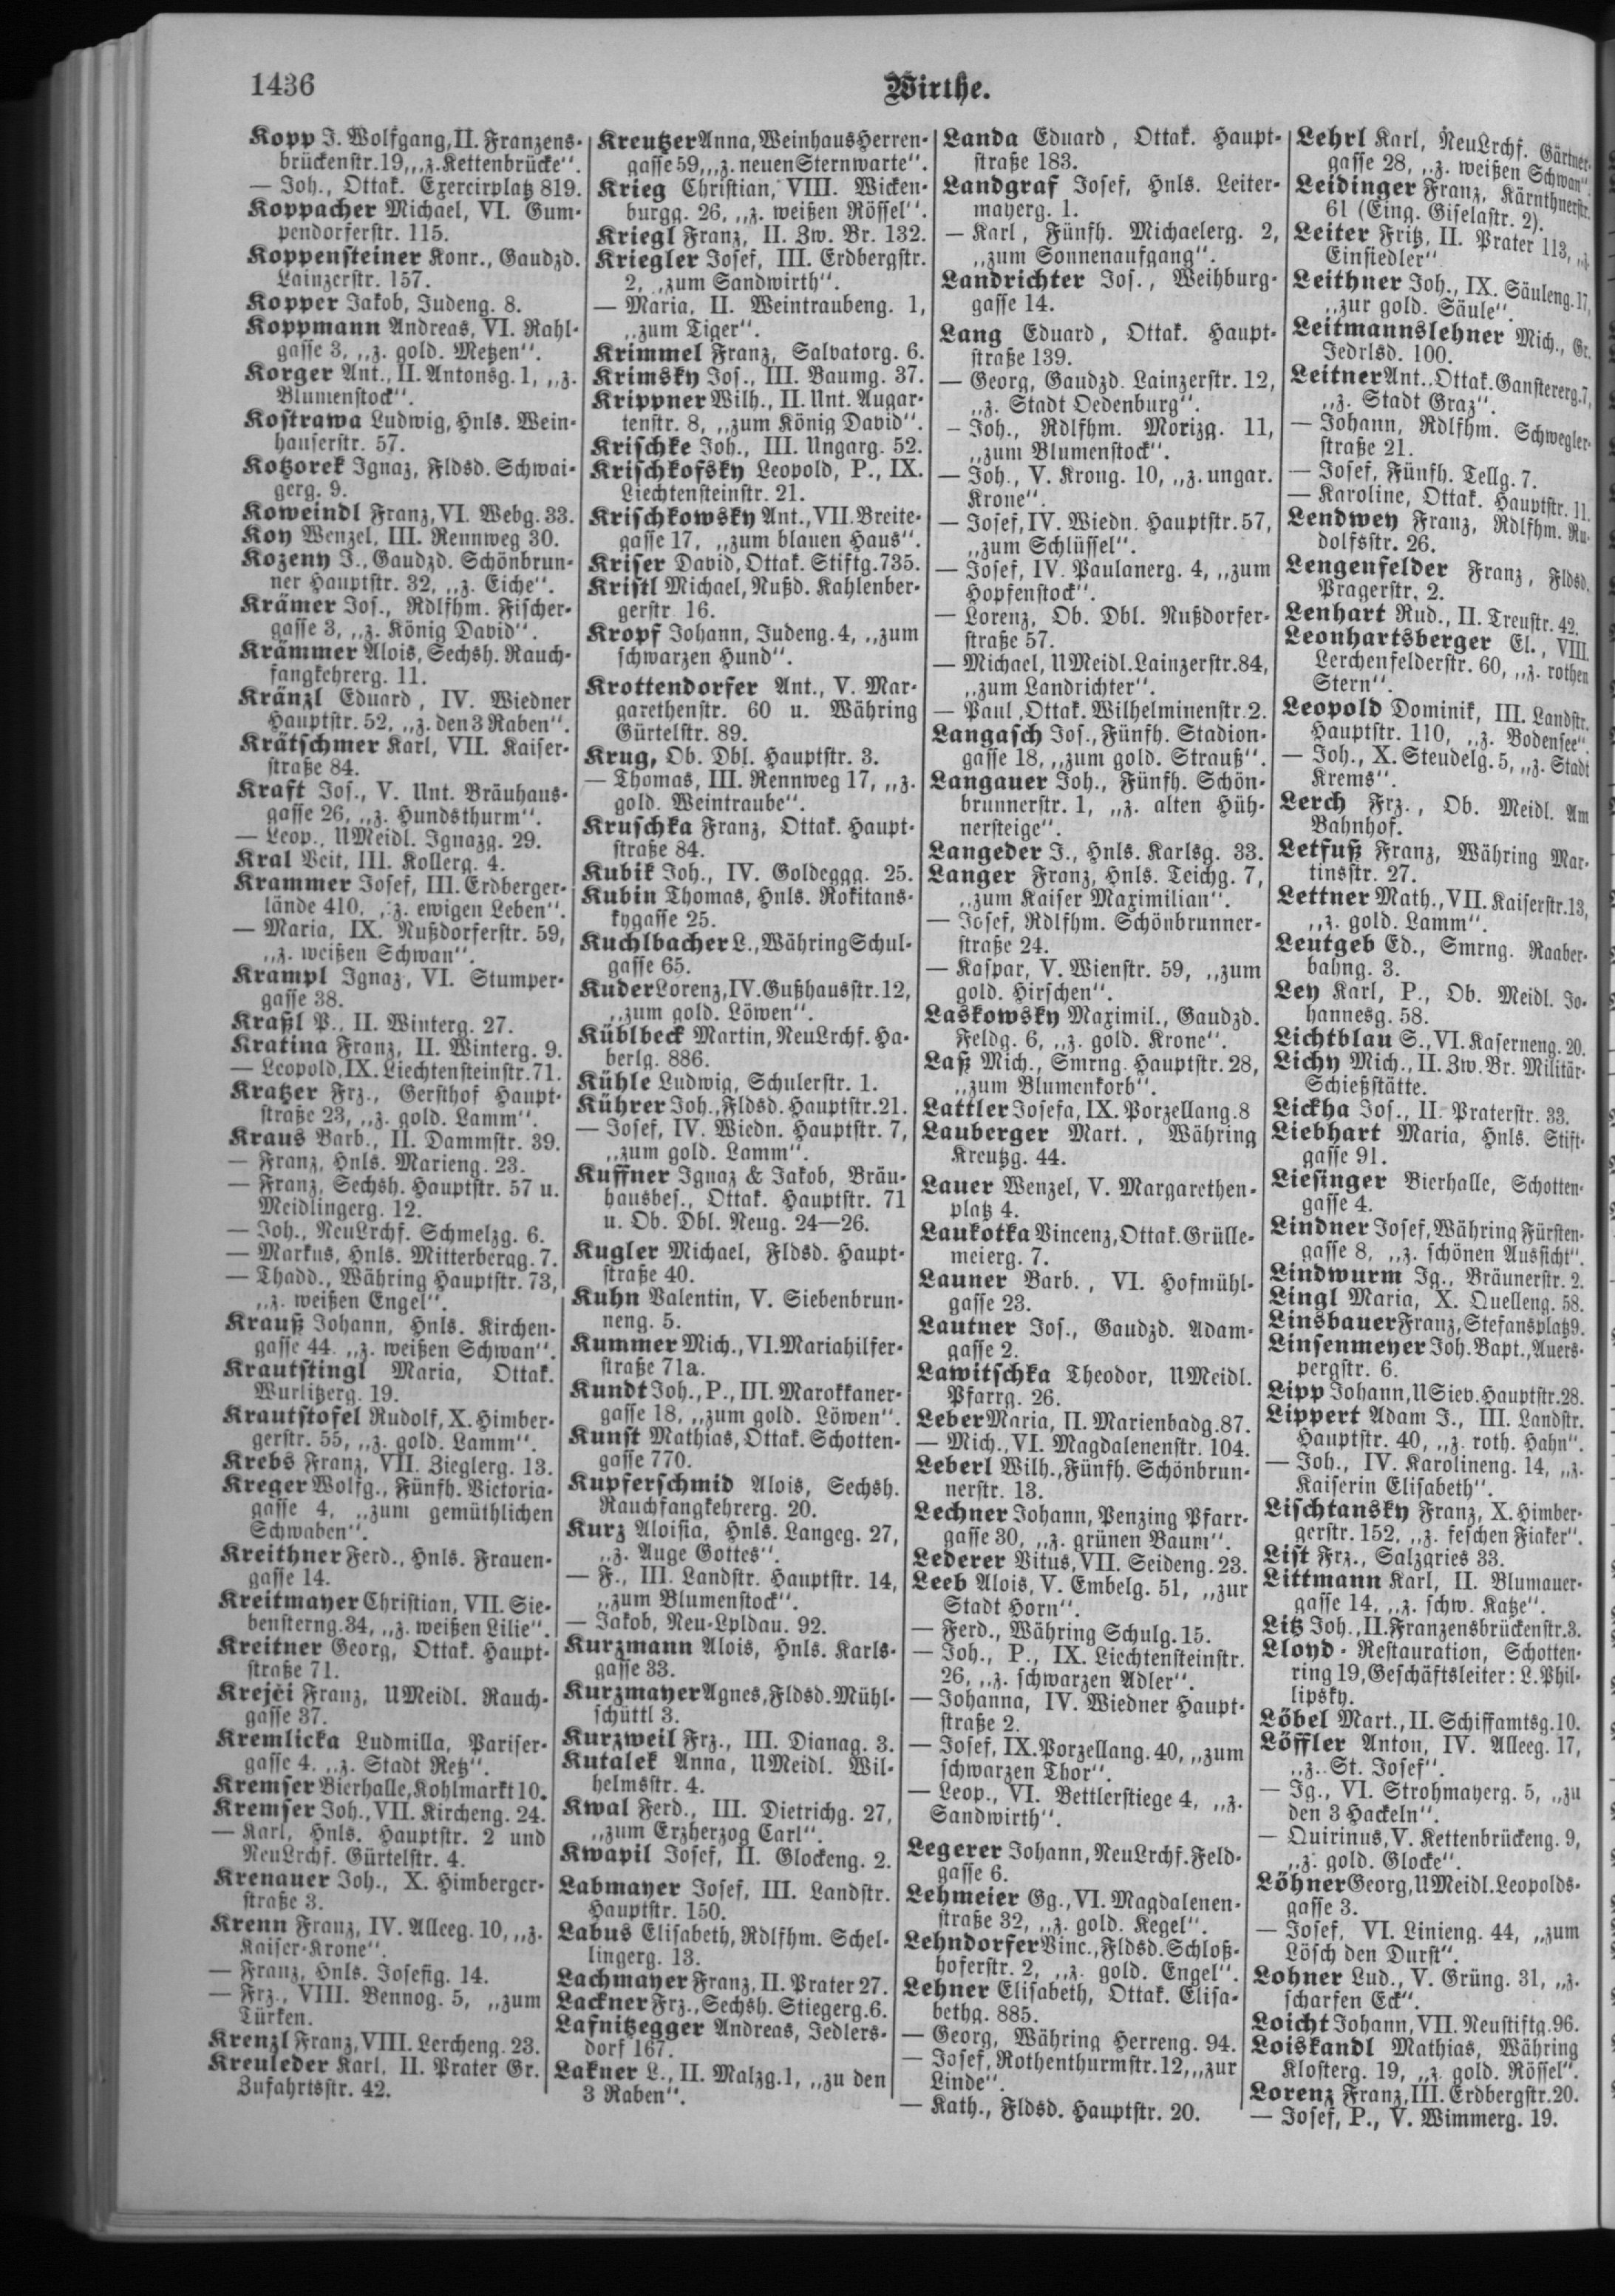 1436
Wirthe.
Kopp J. Wolfgang, II. Franzens-
brückenstr. 19, „z. Kettenbrücke“.
— Joh., Ottak. Exercirplatz 819.
Koppacher Michael, VI. Gum-
pendorferstr. 115.
Koppensteiner Konr., Gaudzd.
Lainzerstr. 157.
Kopper Jakob, Judeng. 8.
Koppmann Andreas, VI. Rahl-
gasse 3, „z. gold. Metzen“.
Korger Ant., II. Antonsg. 1, „z.
Blumenstock“.
Kostrawa Ludwig, Hnls. Wein-
hauserstr. 57.
Kotzorek Ignaz, Fldsd. Schwai-
gerg. 9.
Koweindl Franz, VI. Webg. 33.
Koy Wenzel, III. Rennweg 30.
Kozeny J., Gaudzd. Schönbrun-
ner Hauptstr. 32, „z. Eiche“.
Krämer Jos., Rdlfhm. Fischer-
gasse 3, „z. König David“.
Krämmer Alois, Sechsh. Rauch-
fangkehrerg. 11.
Kränzl Eduard, IV. Wiedner
Hauptstr. 52, „z. den 3 Raben“.
Krätschmer Karl, VII. Kaiser-
straße 84.
Kraft Jos., V. Unt. Bräuhaus-
gasse 26, „z. Hundsthurm“.
— Leop., UMeidl. Ignazg. 29.
Kral Veit, III. Kollerg. 4.
Krammer Josef, III. Erdberger-
lände 410, „z. ewigen Leben“.
— Maria, IX. Nußdorferstr. 59,
„z. weißen Schwan“.
Krampl Ignaz, VI. Stumper-
gasse 38.
Kraßl P., II. Winterg. 27.
Kratina Franz, II. Winterg. 9.
— Leopold, IX. Liechtensteinstr. 71.
Kratzer Frz., Gersthof Haupt-
straße 23, „z. gold. Lamm“.
Kraus Barb., II. Dammstr. 39.
— Franz, Hnls. Marieng. 23.
— Franz, Sechsh. Hauptstr. 57 u.
Meidlingerg. 12.
— Joh., NeuLrchf. Schmelzg. 6.
— Markus, Hnls. Mitterbergg. 7.
— Thadd., Währing Hauptstr. 73,
„z. weißen Engel“.
Krauß Johann, Hnls. Kirchen-
gasse 44. „z. weißen Schwan“.
Krautstingl Maria, Ottak.
Wurlitzerg. 19.
Krautstofel Rudolf, X. Himber-
gerstr. 55, „z. gold. Lamm“.
Krebs Franz, VII. Zieglerg. 13.
Kreger Wolfg., Fünfh. Victoria-
gasse 4, „zum gemüthlichen
Schwaben“.
Kreithner Ferd., Hnls. Frauen-
gasse 14.
Kreitmayer Christian, VII. Sie-
bensterng. 34, „z. weißen Lilie“.
Kreitner Georg, Ottak. Haupt-
straße 71.
Krejči Franz, UMeidl. Rauch-
gasse 37.
Kremlicka Ludmilla, Pariser-
gasse 4. „z. Stadt Retz“.
Kremser Bierhalle, Kohlmarkt 10.
Kremser Joh., VII. Kircheng. 24.
— Karl, Hnls. Hauptstr. 2 und
NeuLrchf. Gürtelstr. 4.
Krenauer Joh., X. Himberger-
straße 3.
Krenn Franz, IV. Alleeg. 10, „z.
Kaiser-Krone“.
— Franz, Hnls. Josefig. 14.
— Frz., VIII. Bennog. 5, „zum
Türken.
Krenzl Franz, VIII. Lercheng. 23.
Kreuleder Karl, II. Prater Gr.
Zufahrtsstr. 42.
Kreutzer Anna, Weinhaus Herren-
gasse 59, „z. neuen Sternwarte“.
Krieg Christian, VIII. Wicken-
burgg. 26, „z. weißen Rössel“.
Kriegl Franz, II. Zw. Br. 132.
Kriegler Josef, III. Erdbergstr.
2, „zum Sandwirth“.
— Maria, II. Weintraubeng. 1,
„zum Tiger“.
Krimmel Franz, Salvatorg. 6.
Krimsky Jos., III. Baumg. 37.
Krippner Wilh., II. Unt. Augar-
tenstr. 8, „zum König David“.
Krischke Joh., III. Ungarg. 52.
Krischkofsky Leopold, P., IX.
Liechtensteinstr. 21.
Krischkowsky Ant., VII. Breite-
gasse 17, „zum blauen Haus“.
Kriser David, Ottak. Stiftg. 735.
Kristl Michael, Nußd. Kahlenber-
gerstr. 16.
Kropf Johann, Judeng. 4, „zum
schwarzen Hund“.
Krottendorfer Ant., V. Mar-
garethenstr. 60 u. Währing
Gürtelstr. 89.
Krug, Ob. Dbl. Hauptstr. 3.
— Thomas, III. Rennweg 17, „z.
gold. Weintraube“.
Kruschka Franz, Ottak. Haupt-
straße 84.
Kubik Joh., IV. Goldeggg. 25.
Kubin Thomas, Hnls. Rokitans-
kygasse 25.
Kuchlbacher L., Währing Schul-
gasse 65.
Kuder Lorenz, IV. Gußhausstr. 12,
„zum gold. Löwen“.
Küblbeck Martin, NeuLrchf. Ha-
berlg. 886.
Kühle Ludwig, Schulerstr. 1.
Kührer Joh., Fldsd. Hauptstr. 21.
— Josef, IV. Wiedn. Hauptstr. 7,
„zum gold. Lamm“.
Kuffner Ignaz & Jakob, Bräu-
hausbes., Ottak. Hauptstr. 71
u. Ob. Dbl. Neug. 24—26.
Kugler Michael, Fldsd. Haupt-
straße 40.
Kuhn Valentin, V. Siebenbrun-
neng. 5.
Kummer Mich., VI. Mariahilfer-
straße 71a.
Kundt Joh., P., III. Marokkaner-
gasse 18, „zum gold. Löwen“.
Kunst Mathias, Ottak. Schotten-
gasse 770.
Kupferschmid Alois, Sechsh.
Rauchfangkehrerg. 20.
Kurz Aloisia, Hnls. Langeg. 27,
„z. Auge Gottes“.
— F., III. Landstr. Hauptstr. 14,
„zum Blumenstock“.
— Jakob, Neu-Lpldau. 92.
Kurzmann Alois, Hnls. Karls-
gasse 33.
Kurzmayer Agnes, Fldsd. Mühl-
schüttl 3.
Kurzweil Frz., III. Dianag. 3.
Kutalek Anna, UMeidl. Wil-
helmsstr. 4.
Kwal Ferd., III. Dietrichg. 27,
„zum Erzherzog Carl“.
Kwapil Josef, II. Glockeng. 2.
Labmayer Josef, III. Landstr.
Hauptstr. 150.
Labus Elisabeth, Rdlfhm. Schel-
lingerg. 13.
Lachmayer Franz, II. Prater 27.
Lackner Frz., Sechsh. Stiegerg. 6.
Lafnitzegger Andreas, Jedlers-
dorf 167.
Lakner L., II. Malzg. 1, „zu den
3 Raben“.
Landa Eduard, Ottak. Haupt-
straße 183.
Landgraf Josef, Hnls. Leiter-
mayerg. 1.
— Karl, Fünfh. Michaelerg. 2,
„zum Sonnenaufgang“.
Landrichter Jos., Weihburg-
gasse 14.
Lang Eduard, Ottak. Haupt-
straße 139.
— Georg, Gaudzd. Lainzerstr. 12,
„z. Stadt Oedenburg“.
— Joh., Rdlfhm. Morizg. 11,
„zum Blumenstock“.
— Joh., V. Krong. 10, „z. ungar.
Krone“.
— Josef, IV. Wiedn. Hauptstr. 57,
„zum Schlüssel“.
— Josef, IV. Paulanerg. 4, „zum
Hopfenstock“.
— Lorenz, Ob. Dbl. Nußdorfer-
straße 57.
— Michael, UMeidl. Lainzerstr. 84,
„zum Landrichter“.
— Paul, Ottak. Wilhelminenstr. 2.
Langasch Jos., Fünfh. Stadion-
gasse 18, „zum gold. Strauß“.
Langauer Joh., Fünfh. Schön-
brunnerstr. 1, „z. alten Hüh-
nersteige“.
Langeder J., Hnls. Karlsg. 33.
Langer Franz, Hnls. Teichg. 7,
„zum Kaiser Maximilian“.
— Josef, Rdlfhm. Schönbrunner-
straße 24.
— Kaspar, V. Wienstr. 59, „zum
gold. Hirschen“.
Laskowsky Maximil., Gaudzd.
Feldg. 6, „z. gold. Krone“.
Laß Mich., Smrng. Hauptstr. 28,
„zum Blumenkorb“.
Lattler Josefa, IX. Porzellang. 8
Lauberger Mart., Währing
Kreutzg. 44.
Lauer Wenzel, V. Margarethen-
platz 4.
Laukotka Vincenz, Ottak. Grülle-
meierg. 7.
Launer Barb., VI. Hofmühl-
gasse 23.
Lautner Jos., Gaudzd. Adam-
gasse 2.
Lawitschka Theodor, UMeidl.
Pfarrg. 26.
Leber Maria, II. Marienbadg. 87.
— Mich., VI. Magdalenenstr. 104.
Leberl Wilh., Fünfh. Schönbrun-
nerstr. 13.
Lechner Johann, Penzing Pfarr-
gasse 30, „z. grünen Baum“.
Lederer Vitus, VII. Seideng. 23.
Leeb Alois, V. Embelg. 51, „zur
Stadt Horn“.
— Ferd., Währing Schulg. 15.
— Joh., P., IX. Liechtensteinstr.
26, „z. schwarzen Adler“.
— Johanna, IV. Wiedner Haupt-
straße 2.
— Josef, IX. Porzellang. 40, „zum
schwarzen Thor“.
— Leop., VI. Bettlerstiege 4, „z.
Sandwirth“.
Legerer Johann, NeuLrchf. Feld-
gasse 6.
Lehmeier Gg., VI. Magdalenen-
straße 32, „z. gold. Kegel“.
Lehndorfer Vinc., Fldsd. Schloß-
hoferstr. 2, „z. gold. Engel“.
Lehner Elisabeth, Ottak. Elisa-
bethg. 885.
— Georg, Währing Herreng. 94.
— Josef, Rothenthurmstr. 12, „zur
Linde“.
— Kath., Fldsd. Hauptstr. 20.
Lehrl Karl, NeuLrchf. Gärtner-
gasse 28, „z. weißen Schwan“.
Leidinger Franz, Kärnthnerstr.
61 (Eing. Giselastr. 2).
Leiter Fritz, II. Prater 113, „z.
Einsiedler“
Leithner Joh., IX. Säuleng. 17,
„zur gold. Säule“.
Leitmannslehner Mich., Gr.
Jedrlsd. 100.
Leitner Ant., Ottak. Ganstererg. 7,
„z. Stadt Graz“.
— Johann, Rdlfhm. Schwegler-
straße 21.
— Josef, Fünfh. Tellg. 7.
— Karoline, Ottak. Hauptstr. 11.
Lendwey Franz, Rdlfhm. Ru-
dolfsstr. 26.
Lengenfelder Franz, Fldsd.
Pragerstr. 2.
Lenhart Rud., II. Treustr. 42.
Leonhartsberger El., VIII.
Lerchenfelderstr. 60, „z. rothen
Stern“.
Leopold Dominik, III. Landstr.
Hauptstr. 110, „z. Bodensee“.
— Joh., X. Steudelg. 5, „z. Stadt
Krems“.
Lerch Frz., Ob. Meidl. Am
Bahnhof.
Letfuß Franz, Währing Mar-
tinsstr. 27.
Lettner Math., VII. Kaiserstr. 13,
„z. gold. Lamm“.
Leutgeb Ed., Smrng. Raaber-
bahng. 3.
Ley Karl, P., Ob. Meidl. Jo-
hannesg. 58.
Lichtblau S., VI. Kaserneng. 20.
Lichy Mich., II. Zw. Br. Militär-
Schießstätte.
Lickha Jos., II. Praterstr. 33.
Liebhart Maria, Hnls. Stift-
gasse 91.
Liesinger Bierhalle, Schotten-
gasse 4.
Lindner Josef, Währing Fürsten-
gasse 8, „z. schönen Aussicht“.
Lindwurm Ig., Bräunerstr. 2.
Lingl Maria, X. Quelleng. 58.
Linsbauer Franz, Stefansplatz 9.
Linsenmeyer Joh. Bapt., Auers-
pergstr. 6.
Lipp Johann, USiev. Hauptstr. 28.
Lippert Adam J., III. Landstr.
Hauptstr. 40, „z. roth. Hahn“.
— Joh., IV. Karolineng. 14, „z.
Kaiserin Elisabeth“.
Lischtansky Franz, X. Himber-
gerstr. 152, „z. feschen Fiaker“.
List Frz., Salzgries 33.
Littmann Karl, II. Blumauer-
gasse 14, „z. schw. Katze“.
Litz Joh., II. Franzensbrückenstr. 3.
Lloyd-Restauration, Schotten-
ring 19, Geschäftsleiter: L. Phil-
lipsky.
Löbel Mart., II. Schiffamtsg. 10.
Löffler Anton, IV. Alleeg. 17,
„z. St. Josef“.
— Ig., VI. Strohmayerg. 5, „zu
den 3 Hackeln“.
— Quirinus, V. Kettenbrückeng. 9,
„z. gold. Glocke“.
Löhner Georg, UMeidl. Leopolds-
gasse 3.
— Josef, VI. Linieng. 44, „zum
Lösch den Durst“.
Lohner Lud., V. Grüng. 31, „z.
scharfen Eck“.
Loicht Johann, VII. Neustiftg. 96.
Loiskandl Mathias, Währing
Klosterg. 19, „z. gold. Rössel“.
Lorenz Franz, III. Erdbergstr. 20.
— Josef, P., V. Wimmerg. 19.